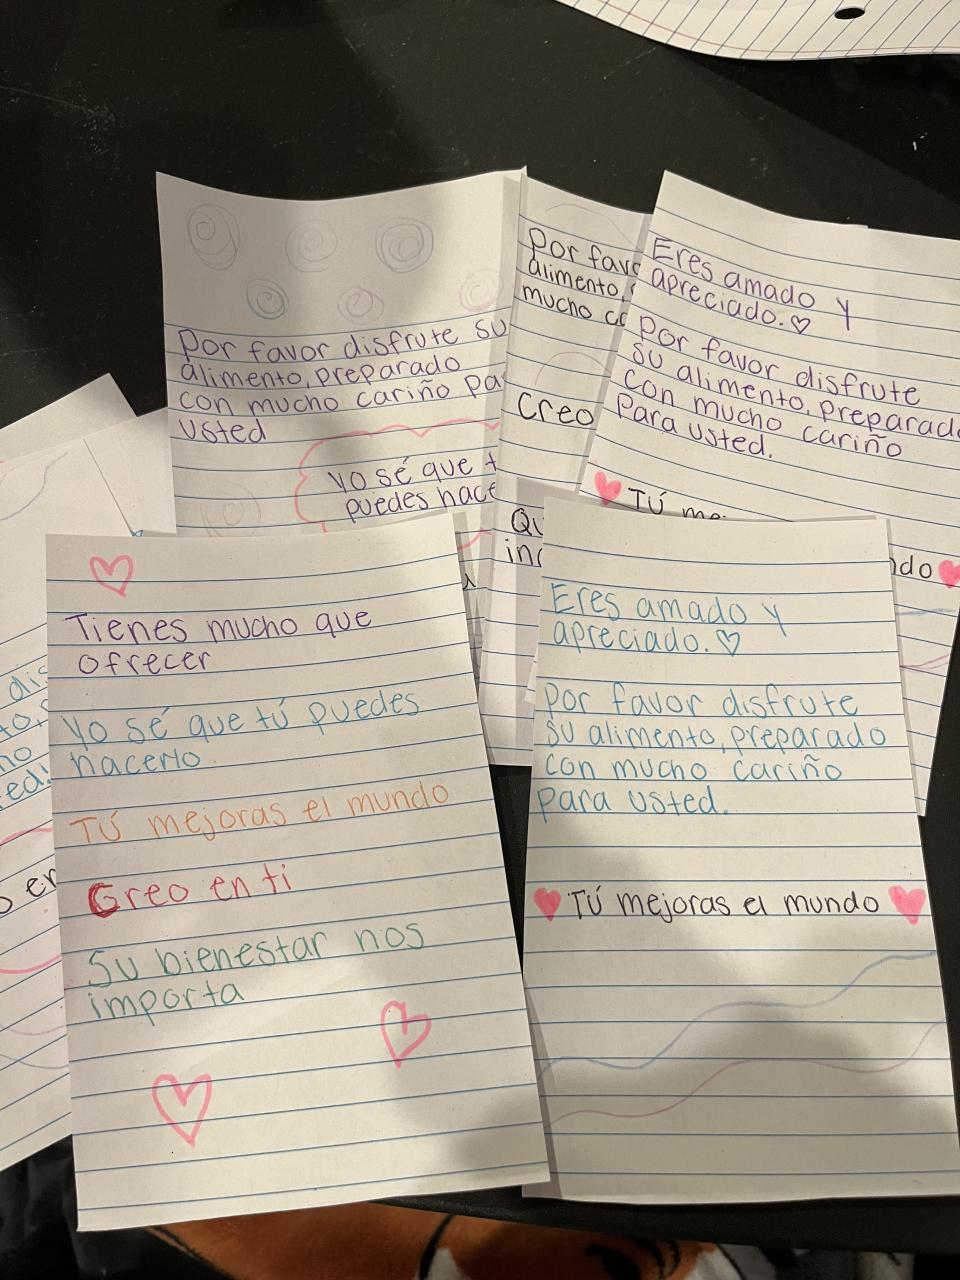 Por favor disfrute su
alimento, preparado
con mucho cariño
usted
Yo sé que
puedes
Por
alimento,
mucho
Creo
Eres amado y
apreciado. ♡
Por favor disfrute
su alimento, preparado
con mucho cariño
para usted.
Tú
Tienes mucho que
ofrecer
Yo sé que tú puedes
hacerlo
Tú mejoras el mundo
Creo en ti
Su bienestar nos
importa
Eres amado y
apreciado. ♡
Por favor disfrute
su alimento, preparado
con mucho cariño
para usted.
Tú mejoras el mundo